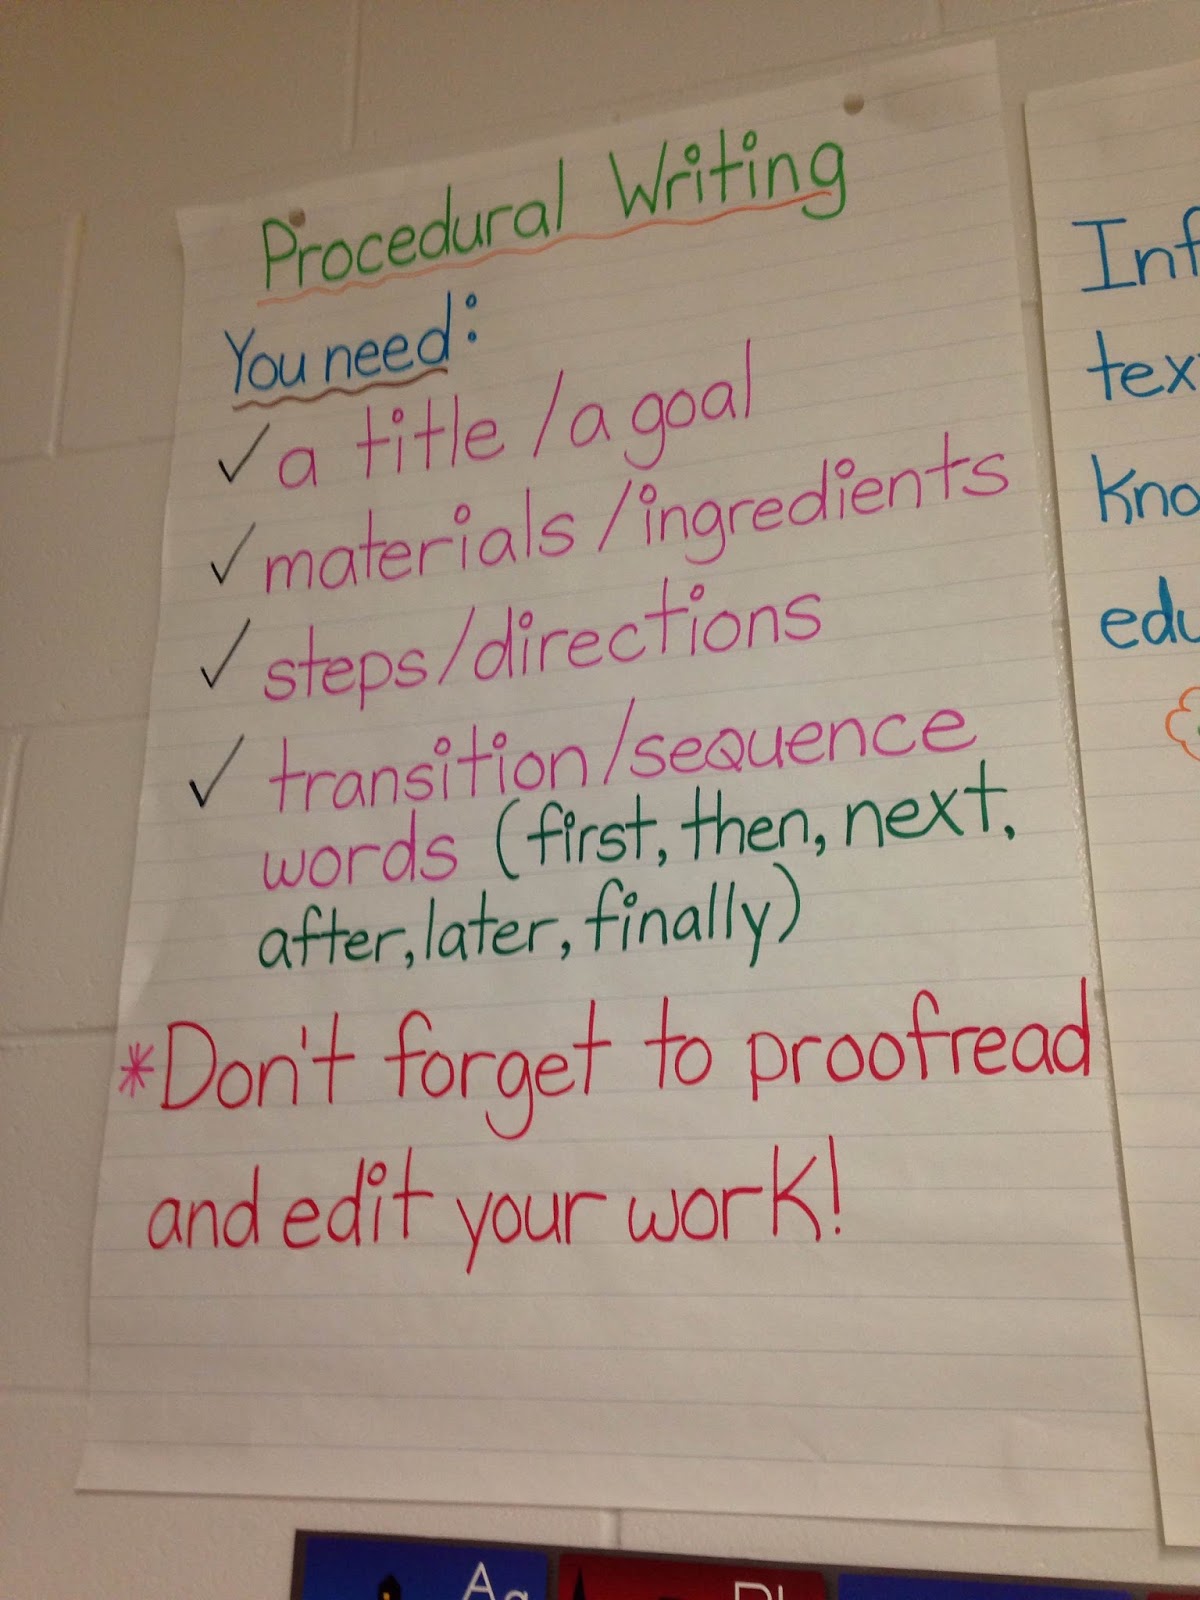 Procedural Writing
You need:
✓ a title / a goal
✓ materials / ingredients
✓ steps/directions
✓ transition/sequence
words (first, then, next,
after, later, finally)
*Don't forget to proofread
and edit your work!
Inf
tex
Kno
edu
Aa